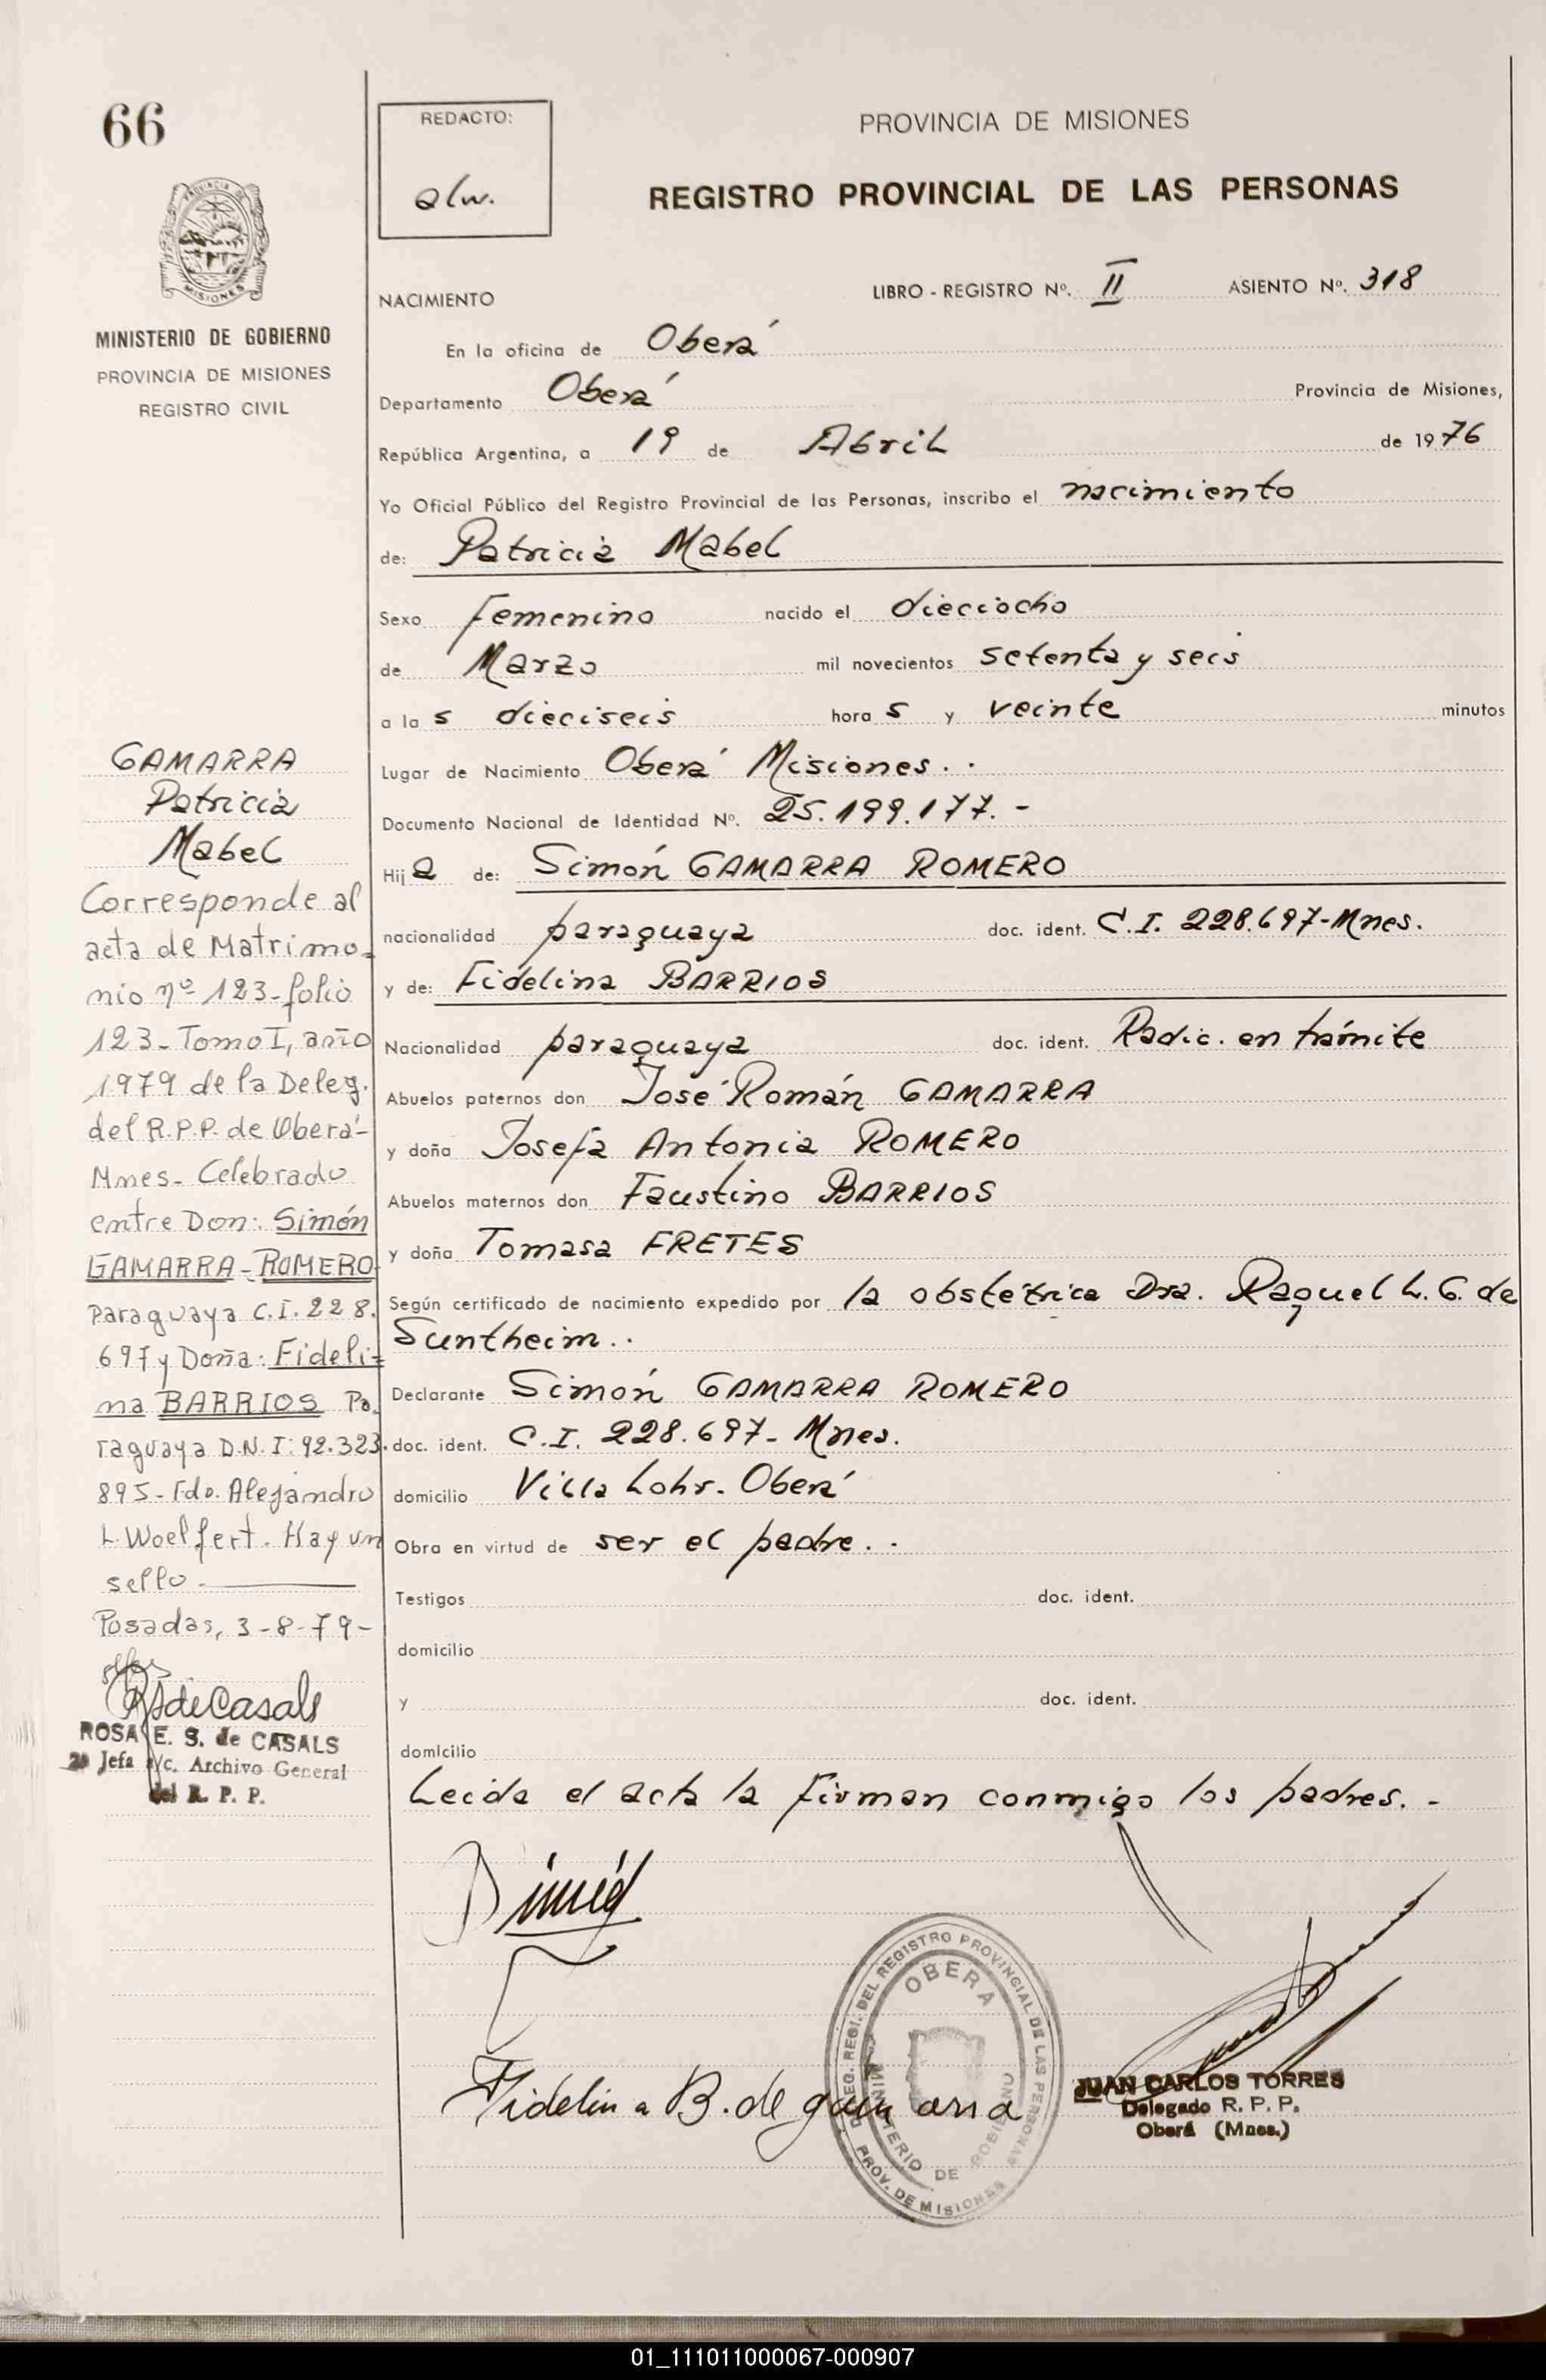 66
REDACTO:
alw.
PROVINCIA DE MISIONES
REGISTRO PROVINCIAL DE LAS PERSONAS
PROVINCIA DE
MISIONES
MINISTERIO DE GOBIERNO
PROVINCIA DE MISIONES
REGISTRO CIVIL
NACIMIENTO
LIBRO - REGISTRO Nº. II ASIENTO Nº. 318
En la oficina de Oberá
Departamento Oberá Provincia de Misiones,
República Argentina, a 19 de Abril de 1976
Yo Oficial Público del Registro Provincial de las Personas, inscribo el nacimiento
de: Patricia Mabel
Sexo Femenino nacido el dieciocho
de Marzo mil novecientos setenta y seis
a la s dieciseis hora s y veinte minutos
Lugar de Nacimiento Oberá Misiones. .
Documento Nacional de Identidad Nº. 25.199.177. -
Hij a de: Simón GAMARRA ROMERO
nacionalidad paraguaya doc. ident. C.I. 228.697-Mnes.
y de: Fidelina BARRIOS
Nacionalidad paraguaya doc. ident. Radic. en trámite
Abuelos paternos don José Román GAMARRA
y doña Josefa Antonia ROMERO
Abuelos maternos don Faustino BARRIOS
y doña Tomasa FRETES
Según certificado de nacimiento expedido por la obstétrica Dra. Raquel L. G. de
Suntheim. .
Declarante Simón GAMARRA ROMERO
doc. ident. C.I. 228.697- Mnes.
domicilio Villa Lohr. Oberá
Obra en virtud de ser el padre. .
Testigos doc. ident.
domicilio
y doc. ident.
domicilio
Leida el acta la firman conmigo los padres. -
GAMARRA
Patricia
Mabel
Corresponde al
acta de Matrimo=
nio nº 123-folio
123-Tomo I, año
1979 de la Deleg.
del R.P.P. de Oberá-
Mnes- Celebrado
entre Don: Simón
GAMARRA-ROMERO-
Paraguaya C.I. 228.
697 y Doña: Fideli=
na BARRIOS Pa.
raguaya D.N.I: 92.323.
895- Fdo. Alejandro
L. Woelfert. Hay un
sello.
Posadas, 3-8-79-
RSdeCasals
ROSA E. S. de CASALS
Jefa a/c. Archivo General
del R. P. P.
Fidelina B. de gamarra
DELEG. REGI. DEL REGISTRO PROVINCIAL DE LAS PERSONAS
OBERA
MINISTERIO DE GOBIERNO
PROV. DE MISIONES
JUAN CARLOS TORRES
Delegado R. P. P.
Oberá (Mnes.)
01_111011000067-000907